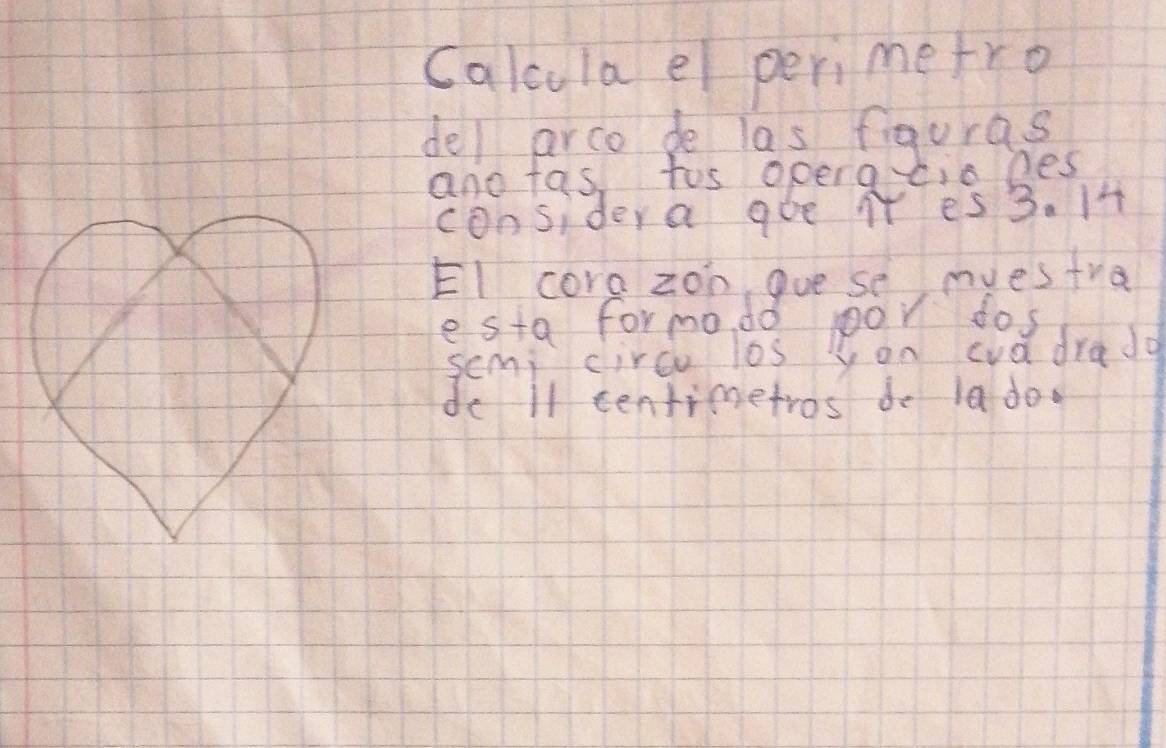 Calcula el perimetro
del arco de las figuras
anotas tus operaciones
considera que π es 3.14
El corazón que se muestra
esta formado por dos
semicirculos y un cuadrado
de 11 centimetros de lado.